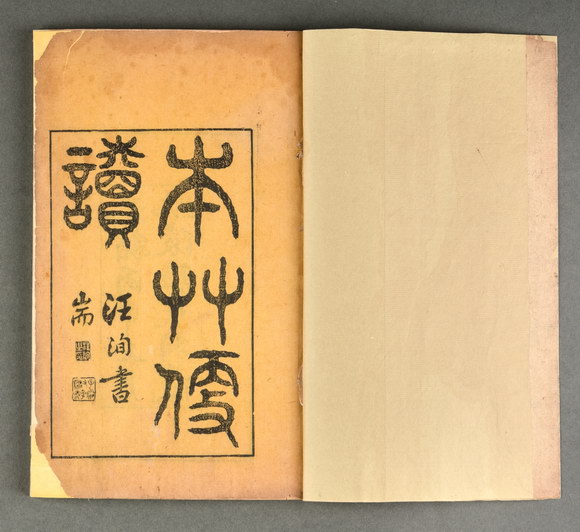 本艸便
讀
汪洵書
耑